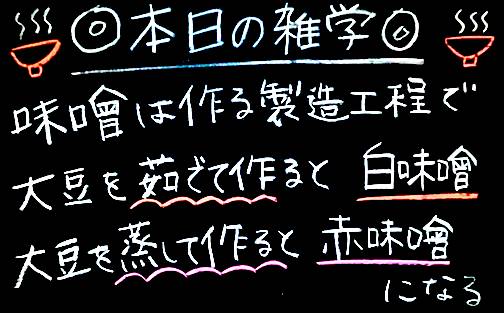 ◎本日の雑学◎
味噌は作る製造工程で
大豆を茹でて作ると 白味噌
大豆を蒸して作ると 赤味噌
になる